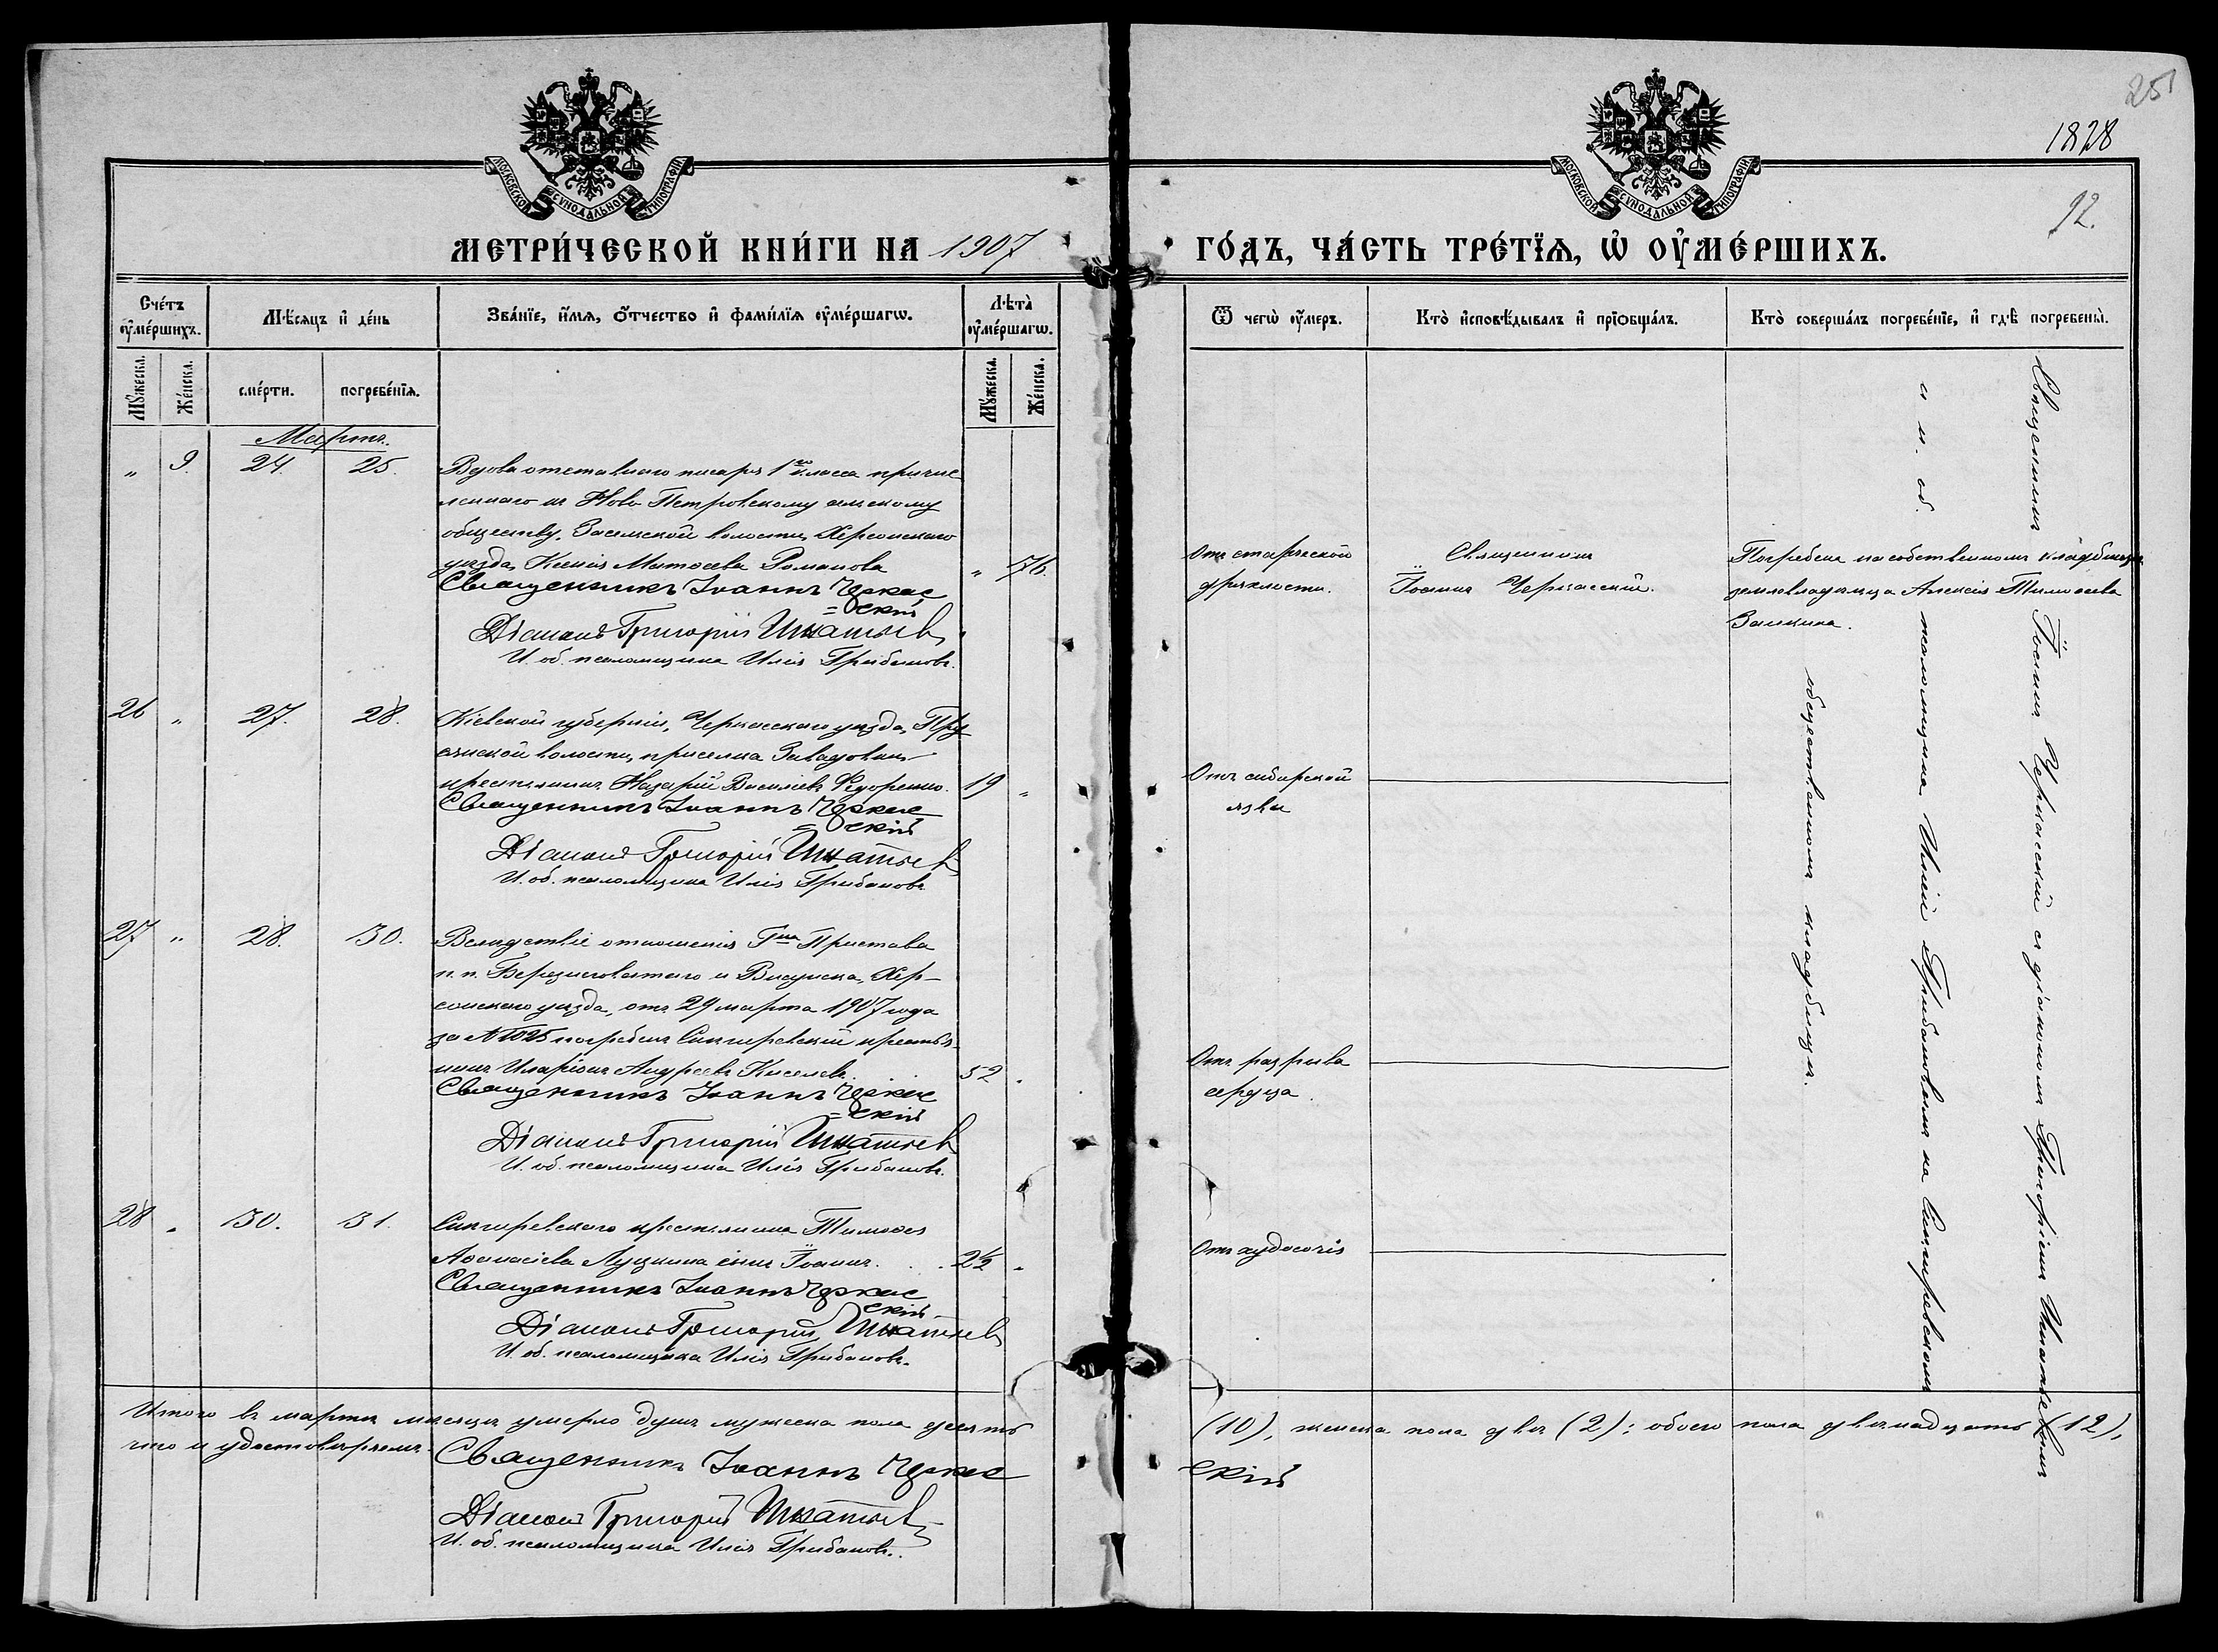 251
1828
92.
МОСКОВСКОЙ СУНОДАЛЬНОЙ ТИПОГРАФІИ
МОСКОВСКОЙ СУНОДАЛЬНОЙ ТИПОГРАФІИ
МЕТРИ́ЧЕСКОЙ КНИ́ГИ НА 1907
ГО́ДЪ, ЧА́СТЬ ТРЕ́ТЇѦ, Ѡ҆ ОУ҆МЕ́РШИХЪ.
Сче́тъ оу҆ме́ршихъ.
Мѣ́сяцъ и҆ де́нь
Зва́нїе, и҆́мѧ, ѻ҆́тчество и҆ фами́лїѧ оу҆ме́ршагѡ.
Лѣ́та оу҆ме́ршагѡ.
Ѿ чегѡ̀ оу҆́меръ.
Кто̀ и҆сповѣ́дывалъ и҆ прїѻбща́лъ.
Кто̀ соверша́лъ погребе́нїе, и҆ гдѣ̀ погребены̀.
Мꙋ́жеска.
Же́нска.
сме́рти.
погребе́нїѧ.
Мꙋ́жеска.
Же́нска.
Мартъ.
" 9. 24. 25. Вдова отставнаго писаря 1го класса причис
леннаго къ Ново Петровскому сельскому
обществу, Засельской волости, Херсонскаго
уѣзда, Ксенія Матѳеева Романова " 76.
Священникъ Іоаннъ Черкас
=скій
Діаконъ Григорій Игнатьев
И. об. псаломщика Илія Грибановъ.
Отъ старческой
дряхлости.
Священникъ
Іоаннъ Черкасскій.
Погребена на собственномъ кладбищѣ
землевладѣльца Алексія Тимоѳеева
Заикина.
26 " 27. 28. Кіевской губерніи, Черкасскаго уѣзда,
волости, приселка Завадовки
крестьянинъ Назарій Василіевъ Ѳедоренко. 19 "
Священникъ Іоаннъ Черкас
=скій
Діаконъ Григорій Игнатьев
И. об. псаломщика Илія Грибановъ
Отъ сибирской
язвы
27 " 28. 30. Вслѣдствіе отношенія Гна Пристава
п. п. Березнеговатаго и Висунска, Хер-
сонскаго уѣзда, отъ 29 марта 1907 года
за № 1025 погребенъ Снигиревскій крестья-
нинъ Иларіонъ Андреевъ Киселевъ. 52 "
Священникъ Іоаннъ Черкас
=скій
Діаконъ Григорій Игнатьев
И. об. псаломщика Илія Грибановъ.
Отъ разрыва
сердца.
28 " 30. 31. Снигиревскаго крестьянина Тимоѳея
Аѳанасіева Луцкина сынъ Іоаннъ. 2½ "
Священникъ Іоаннъ Черкас
скій
Діаконъ Григорій Игнатьев
И. об. псаломщика Илія Грибановъ.
Отъ худосочія
Священникъ Іоаннъ Черкасскій съ діакономъ Григоріемъ Игнатьевымъ
и и. об. псаломщика Иліей Грибановымъ на Снигиревскомъ
общественномъ кладбищѣ.
Итого въ мартѣ мѣсяцѣ умерло душъ мужеска пола десять (10), женска пола двѣ (2); обоего пола двѣнадцать (12),
что и удостовѣряемъ. Священникъ Іоаннъ Черкас скій
Діаконъ Григорій Игнатьев
И. об. псаломщика Илія Грибановъ.